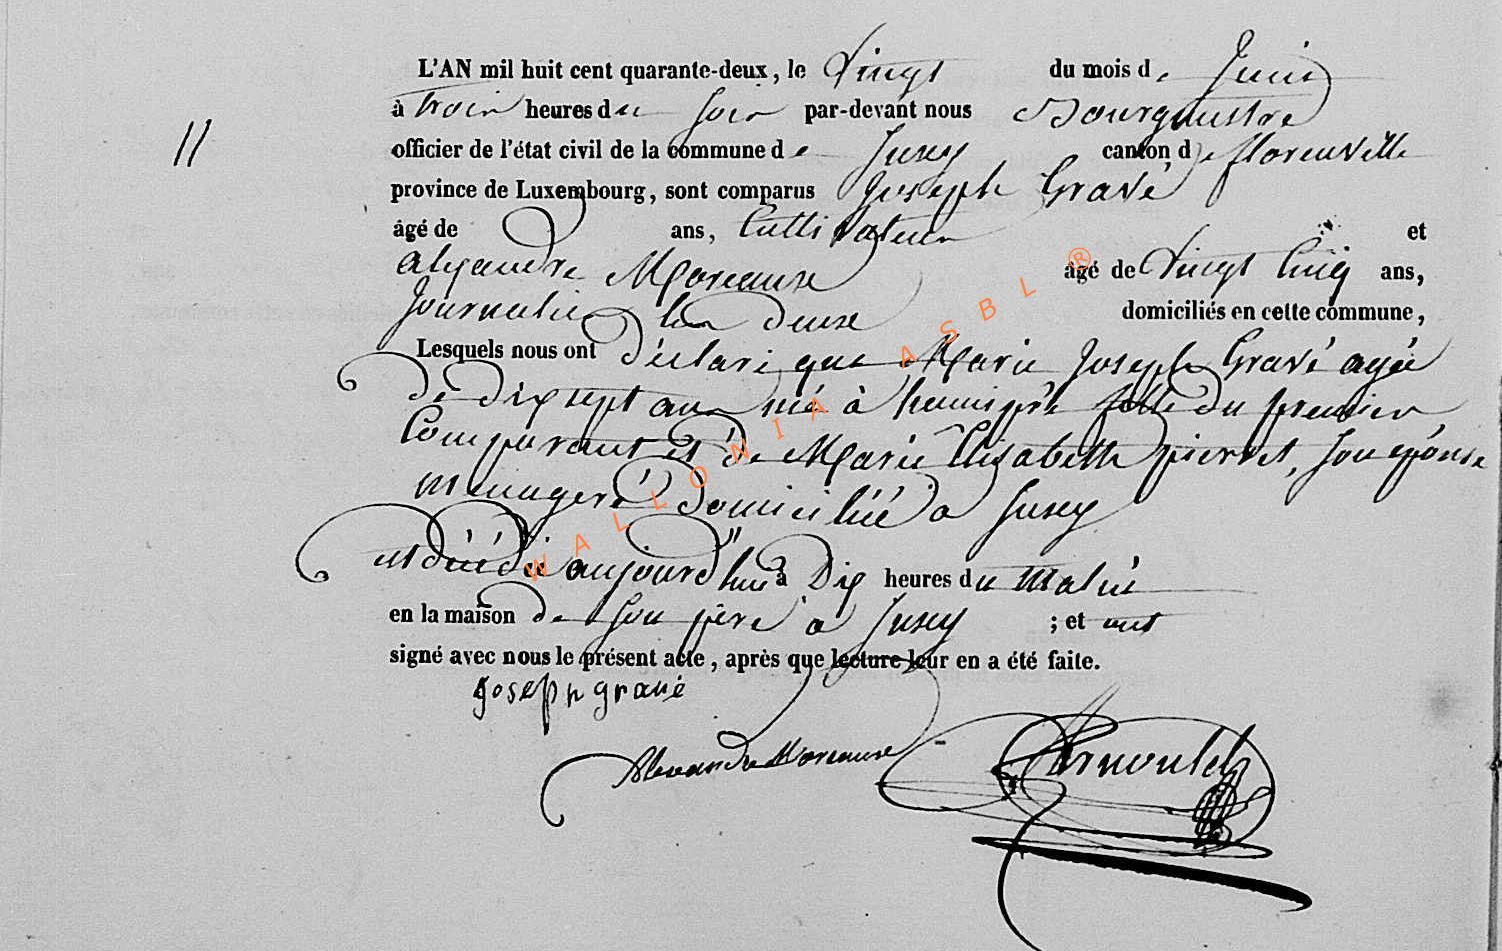 L'AN mil huit cent quarante-deux, le vingt du mois de Juin
11
à trois heures du soir par-devant nous Bourgmestre
officier de l'état civil de la commune de Jusey canton de florenville
province de Luxembourg, sont comparus Joseph Gravé
âgé de ans, Cultivateur et
alexandre Moreaux âgé de vingt cinq ans,
Journalier deux domiciliés en cette commune,
Lesquels nous ont déclaré que Marie Joseph Gravé agée
de dix sept ans née à fille du premier
Comparant et de Marie Elizabeth pierret, son épouse
menagere domiciliée a Jusey
est aujourd'hui à Dix heures du matin
en la maison de son père a Jusey ; et ont
signé avec nous le présent acte, après que lecture leur en a été faite.
Joseph gravé
Alexandre Moreaux
WALLONIA ASBL ®